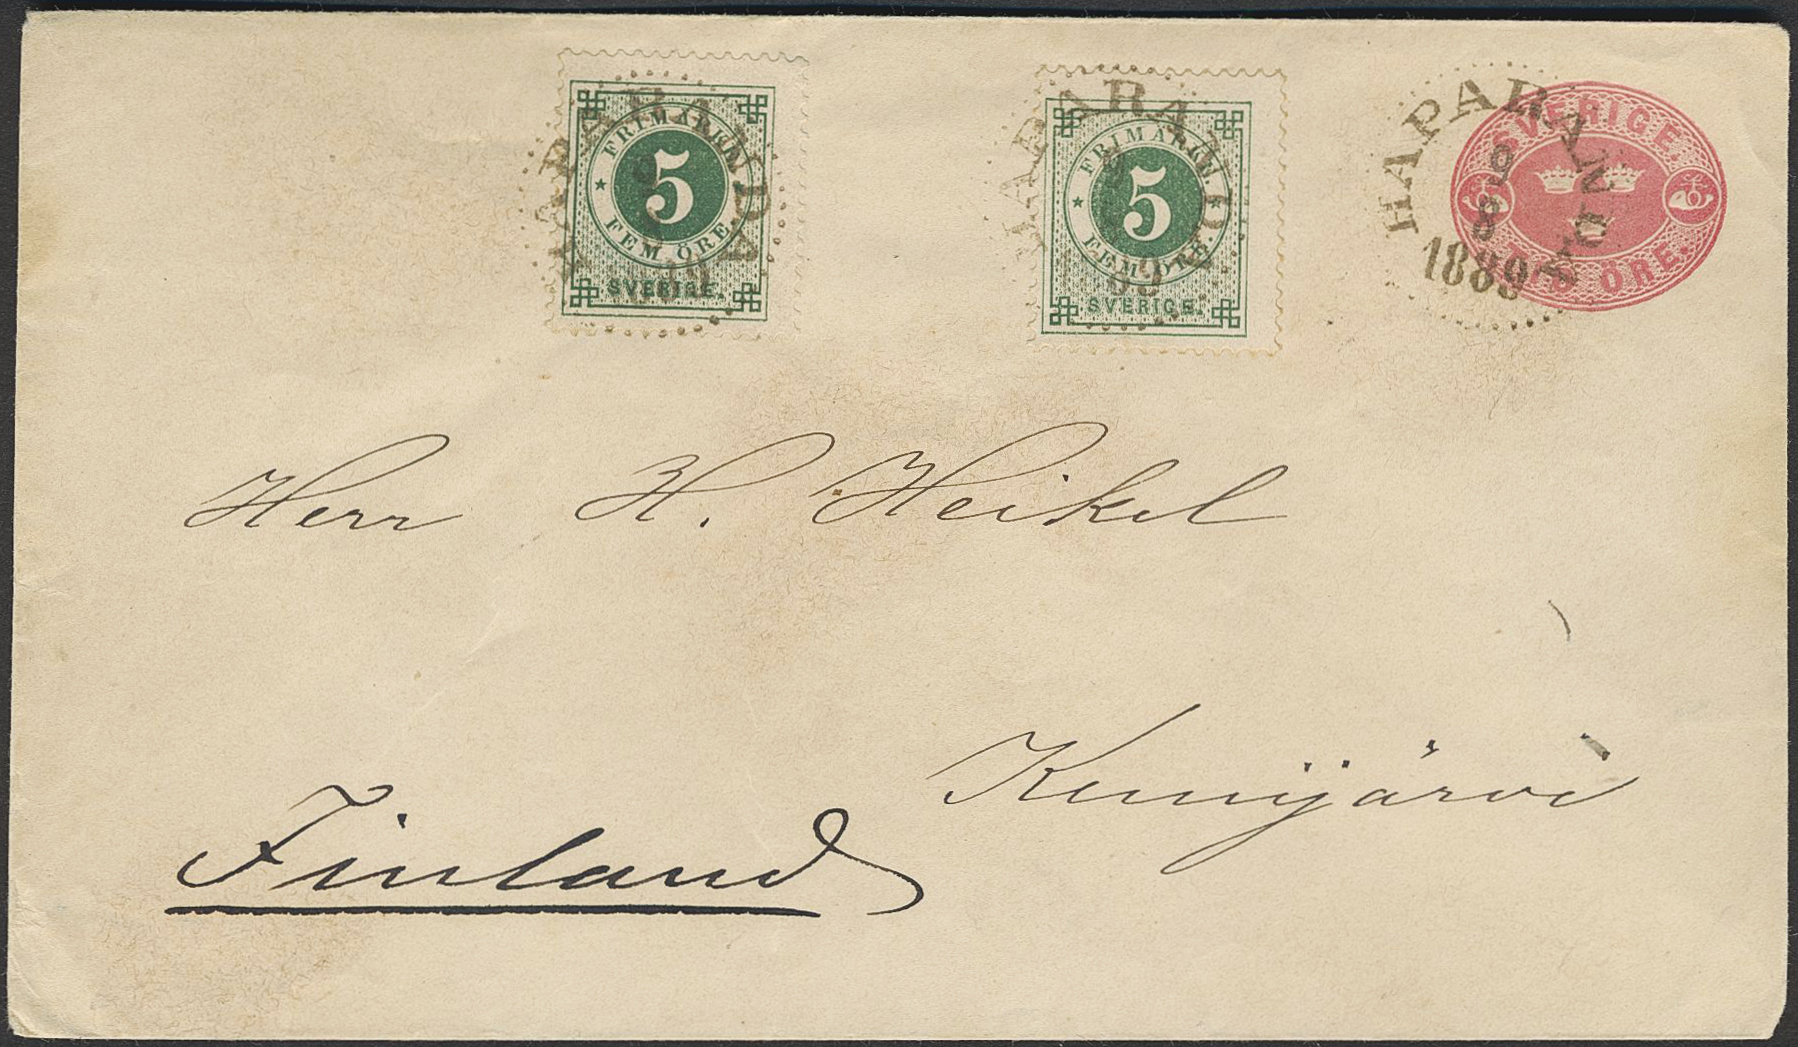 FRIMÄRKE.
5
FEM ÖRE.
SVERIGE.
HAPARANDA
FRIMÄRKE.
5
FEM ÖRE.
SVERIGE.
HAPARANDA
SVERIGE.
TIO ÖRE.
HAPARANDA
9
8
1889
Herr H. Heikel
Kemijärvi
Finland